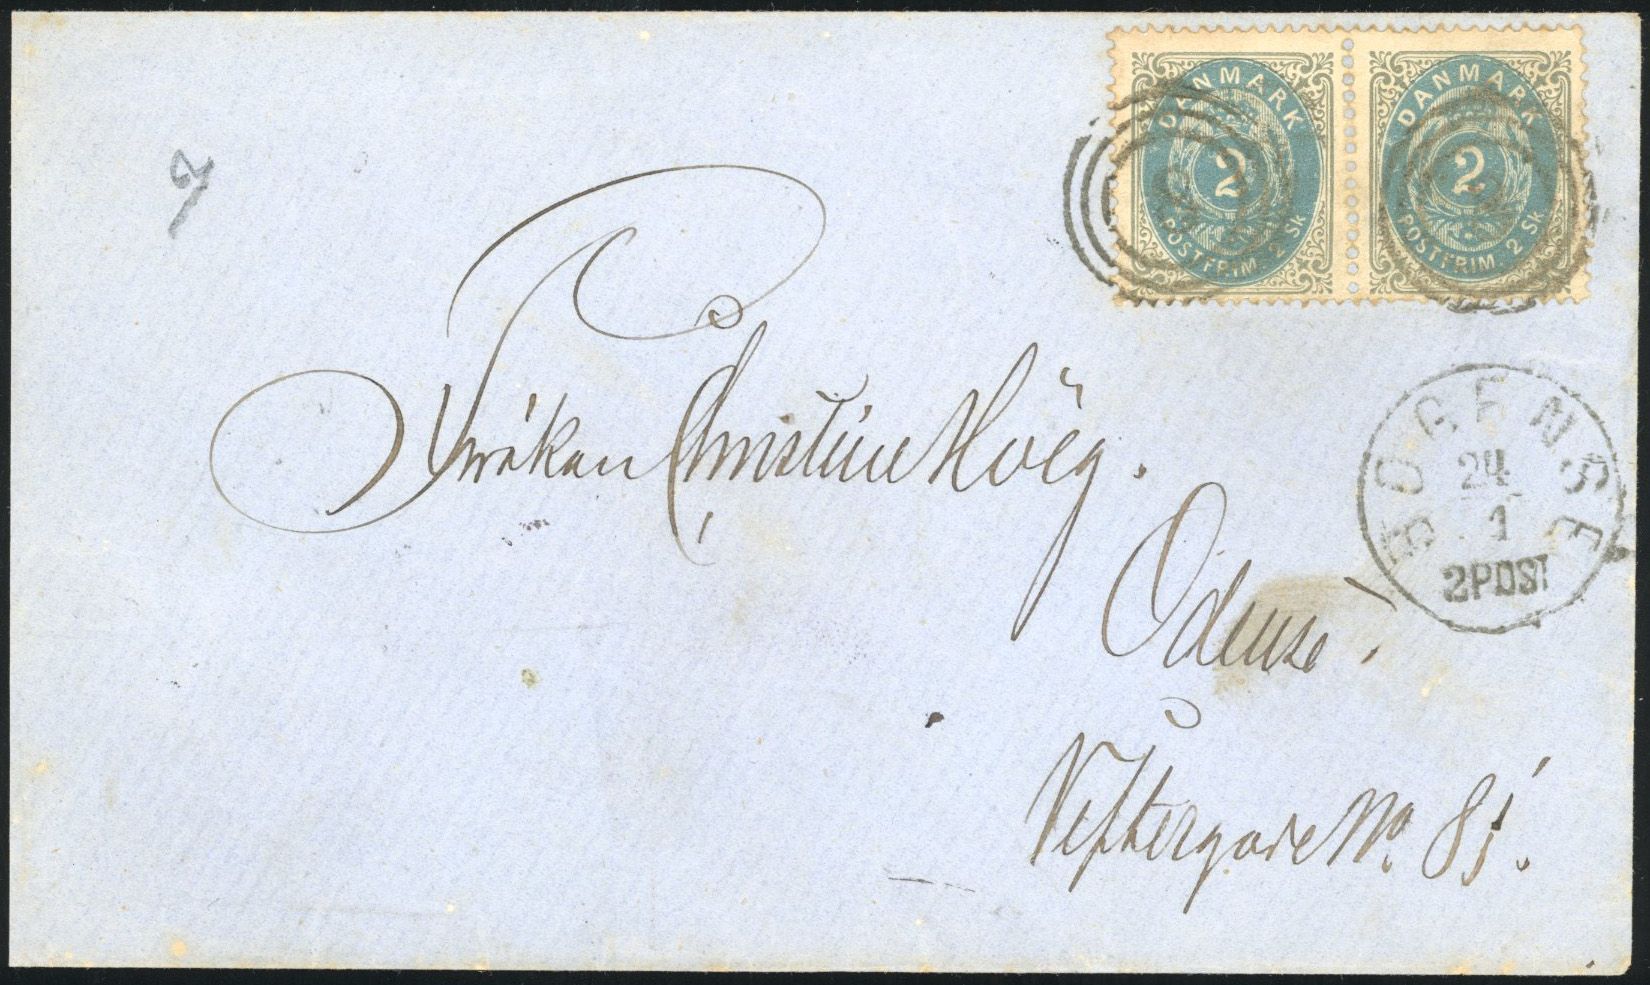 DANMARK
2
POSTFRIM. 2 Sk
DANMARK
2
POSTFRIM. 2 Sk
Fröken Christine Höeg.
BOGENSE
24
1
2POST
Odense.
Vestergade No.